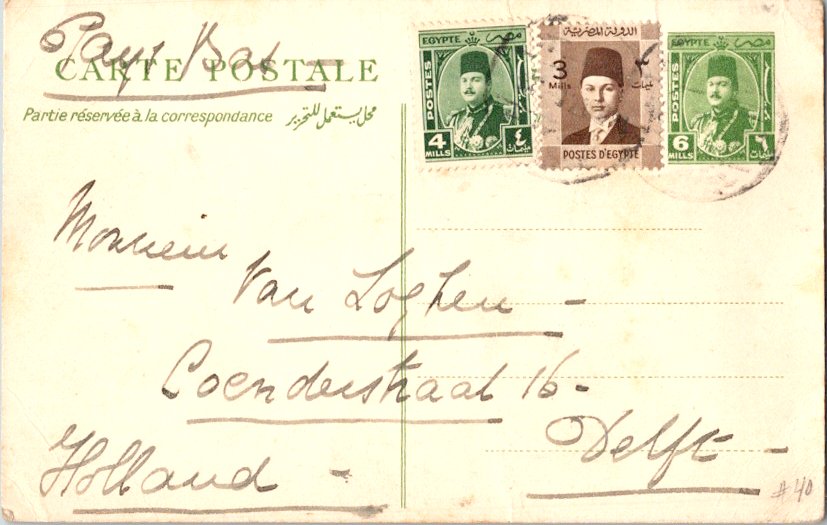 Pays Bas -
CARTE POSTALE
Partie réservée à la correspondance محل يستعمل للتحرير
EGYPTE مصر
POSTES
4 MILLS ٤ مليمات
الدولة المصرية
3 Mills ٣ مليمات
POSTES D'EGYPTE
EGYPTE مصر
POSTES
6 MILLS ٦ مليمات
Monsieur
Van Loghen -
Coenderstraat 16 -
Delft -
Holland -
#40